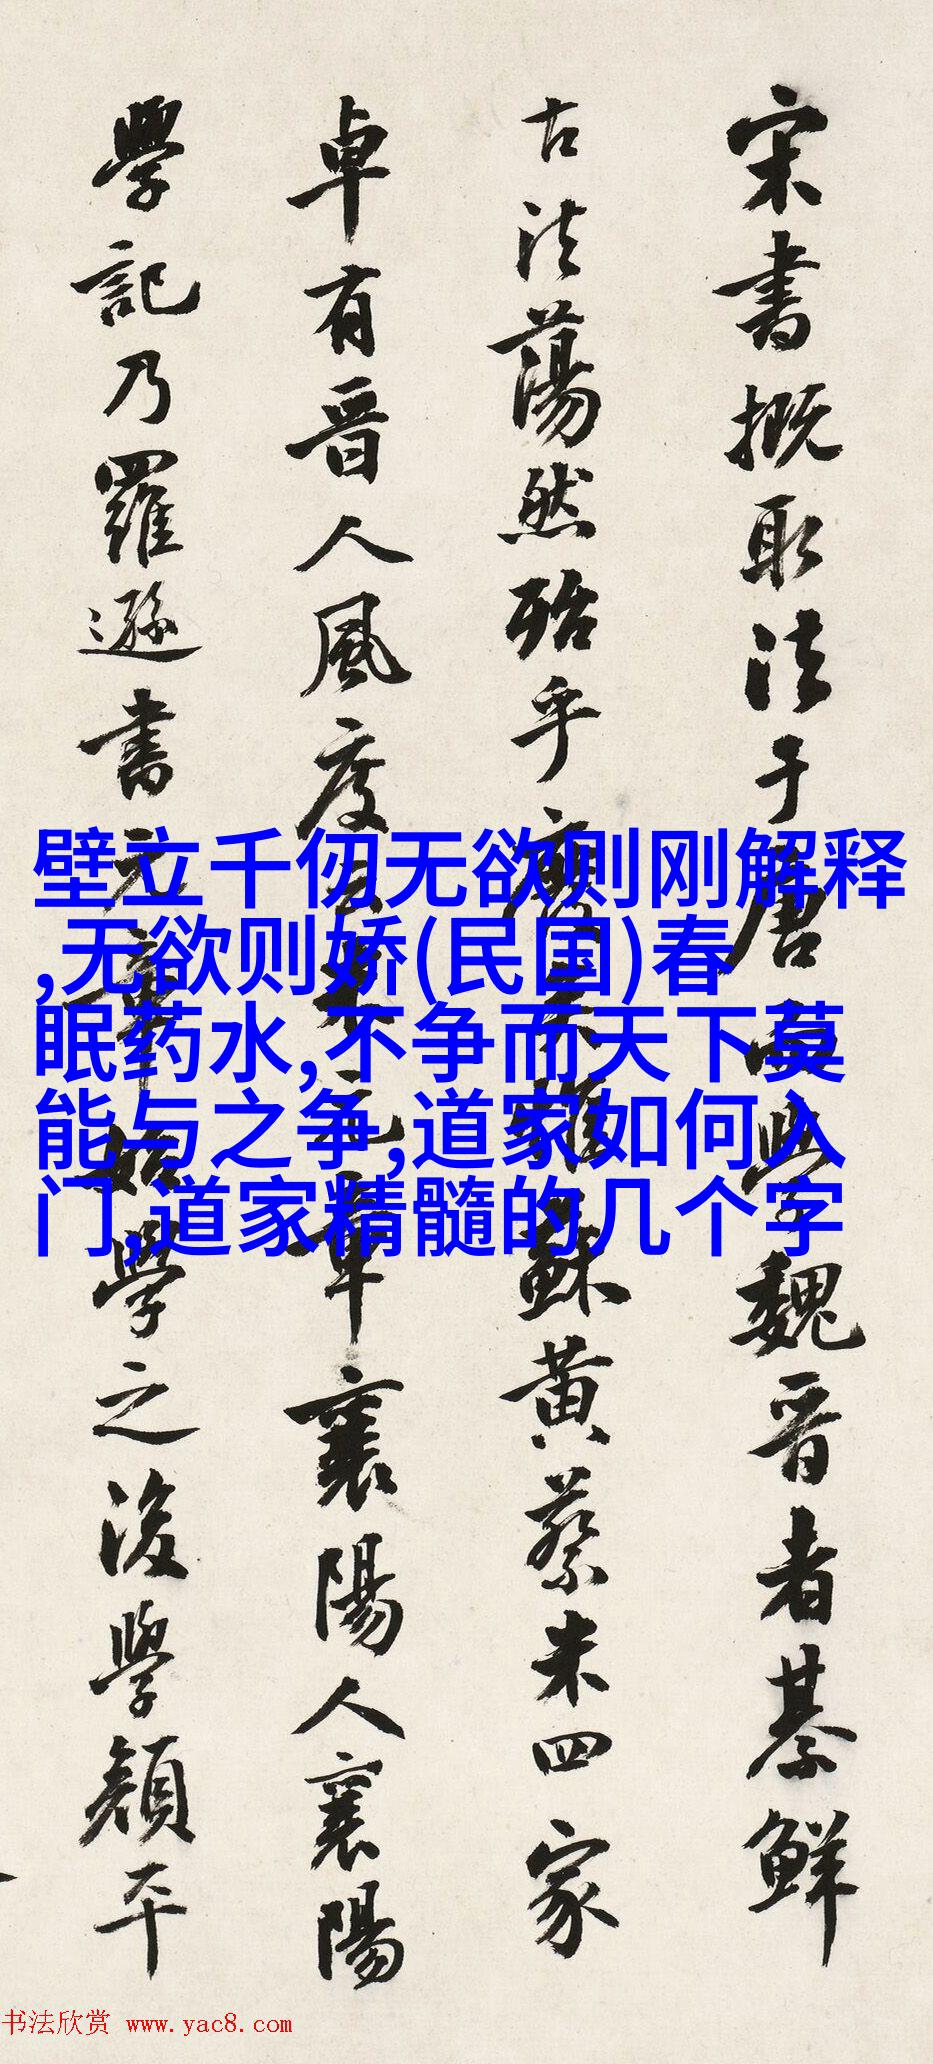 宋書概取法于唐而學魏晋者綦鮮
古法蕩然殆乎蘇黄蔡米四家
卓有晋人風度元章襄陽人襄陽
學記乃羅遜書元章始學之後學顏平
壁立千仞无欲则刚解释
,无欲则娇(民国)春
眠药水,不争而天下莫
能与之争,道家如何入
门,道家精髓的几个字
书法欣赏 www.yac8.com